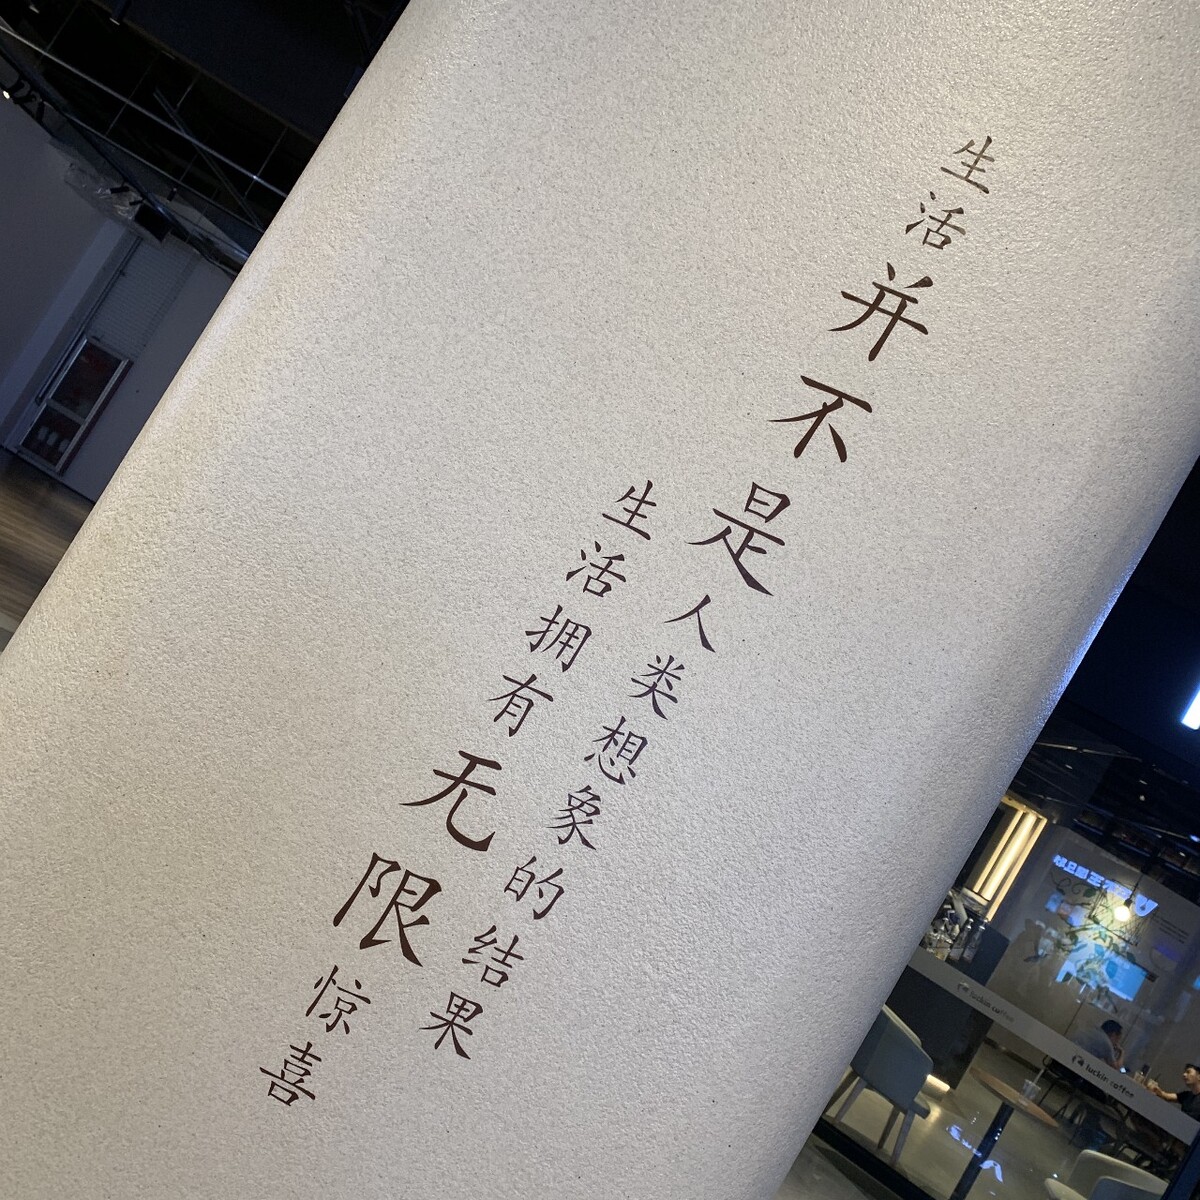 生活并不是人类想象的结果
生活拥有无限惊喜
luckin coffee
luckin coffee